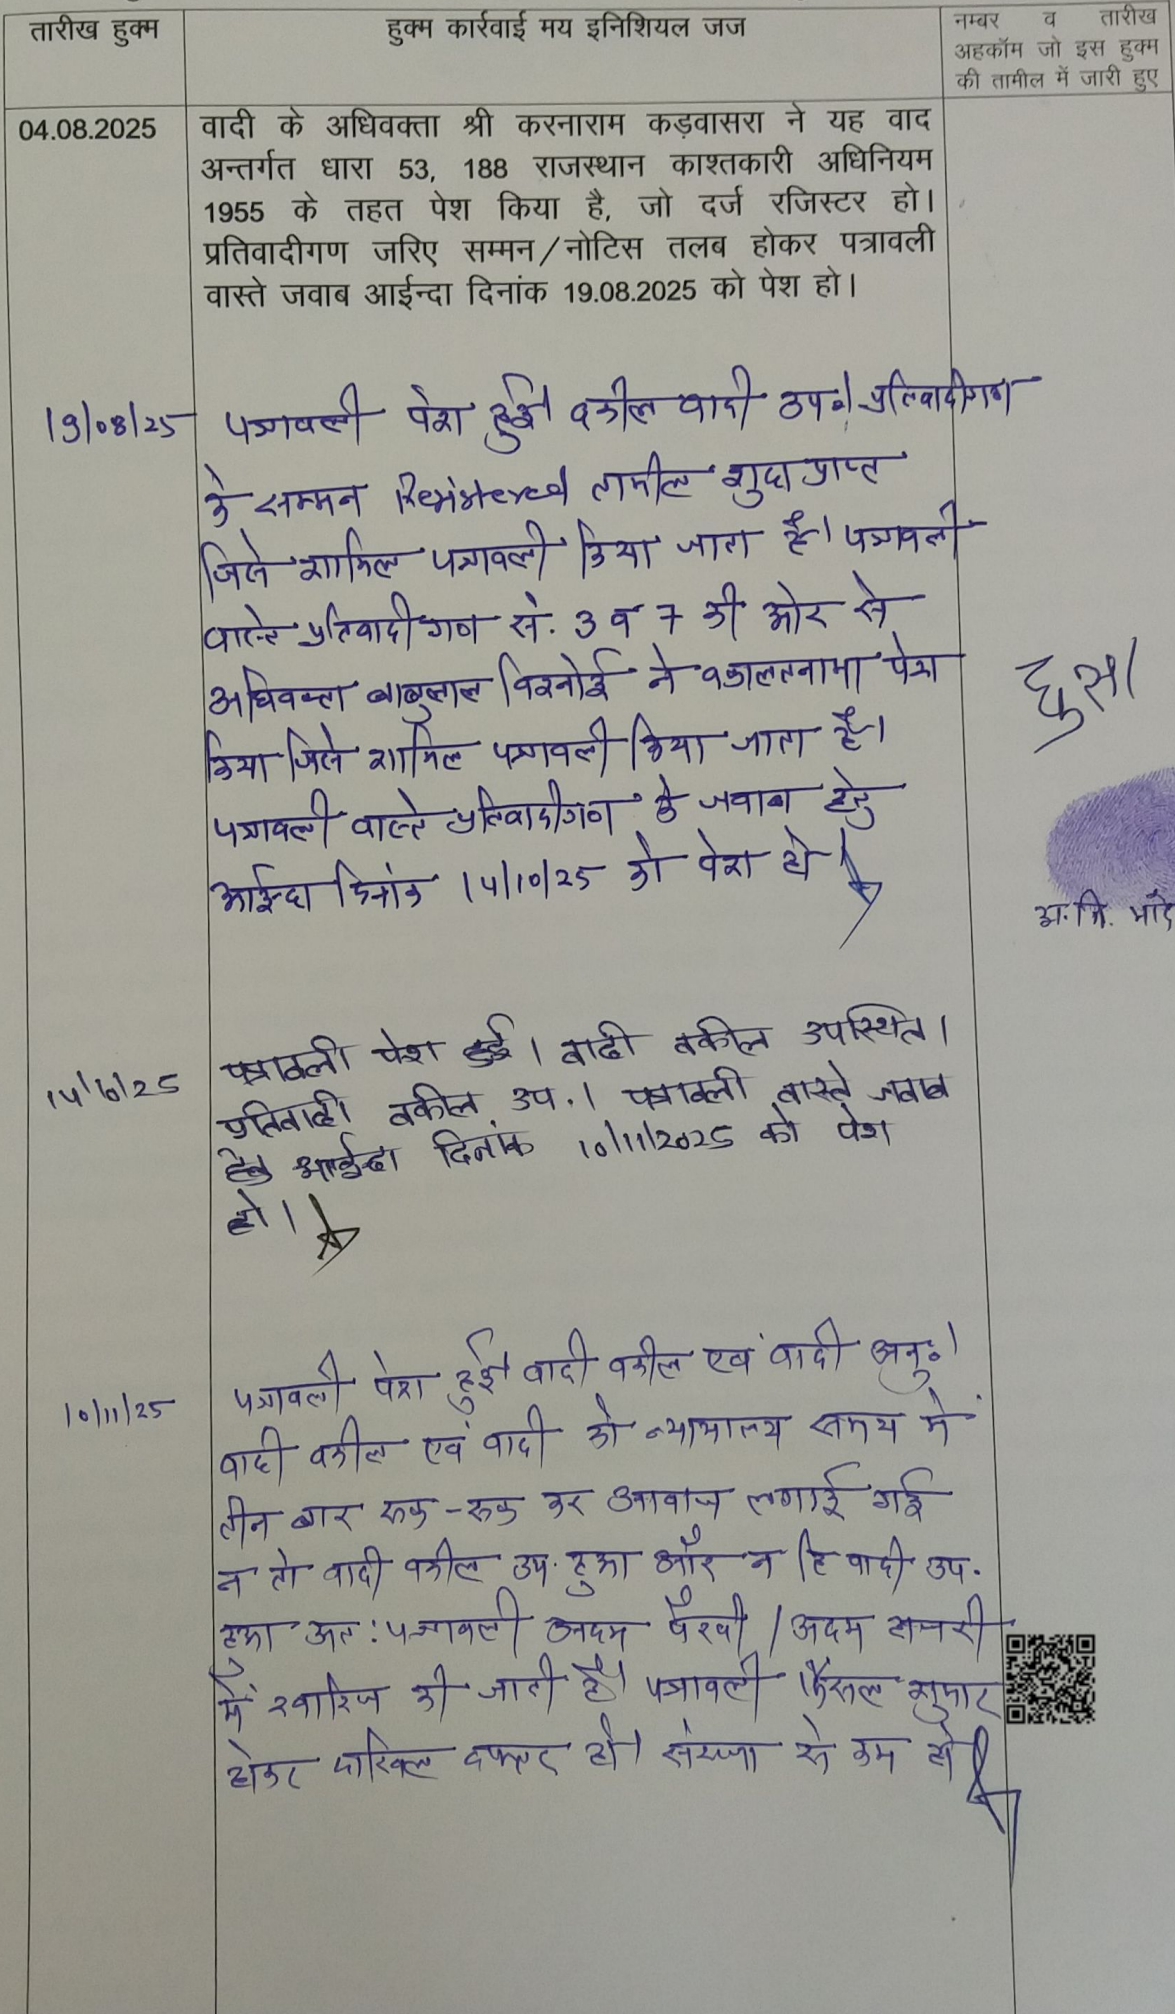 तारीख हुक्म
हुक्म कार्रवाई मय इनिशियल जज
नम्बर व तारीख
अहकॉम जो इस हुक्म
की तामील में जारी हुए
04.08.2025
वादी के अधिवक्ता श्री करनाराम कड़वासरा ने यह वाद
अन्तर्गत धारा 53, 188 राजस्थान काश्तकारी अधिनियम
1955 के तहत पेश किया है, जो दर्ज रजिस्टर हो।
प्रतिवादीगण जरिए सम्मन/नोटिस तलब होकर पत्रावली
वास्ते जवाब आईन्दा दिनांक 19.08.2025 को पेश हो।
19/08/25
पत्रावली पेश हुई। वकील वादी उप०। प्रतिवादीगण
के सम्मन Registered तामील शुदा प्राप्त
जिसे शामिल पत्रावली किया जाता है। पत्रावली
वास्ते प्रतिवादीगण सं. 3 व 7 की ओर से
अधिवक्ता बाबुलाल विश्नोई ने वकालतनामा पेश
किया जिसे शामिल पत्रावली किया जाता है।
पत्रावली वास्ते प्रतिवादीगण के जवाब हेतु
आईन्दा दिनांक 14/10/25 को पेश हो।
अ. नि.
14/10/25
पत्रावली पेश हुई। वादी वकील उपस्थित।
प्रतिवादी वकील उप.। पत्रावली वास्ते जवाब
हेतु आईन्दा दिनांक 10/11/2025 को पेश
हो।
10/11/25
पत्रावली पेश हुई। वादी वकील एवं वादी अनु०।
वादी वकील एवं वादी को न्यायालय समय में
तीन बार रूक-रूक कर आवाज लगाई गई
न तो वादी वकील उप. हुआ और न हि वादी उप.
हुआ अत: पत्रावली अदम पैरवी / अदम हाजरी
में खारिज की जाती है। पत्रावली फैसल शुमार
होकर दाखिल दफ्तर हो। संख्या से कम हो।